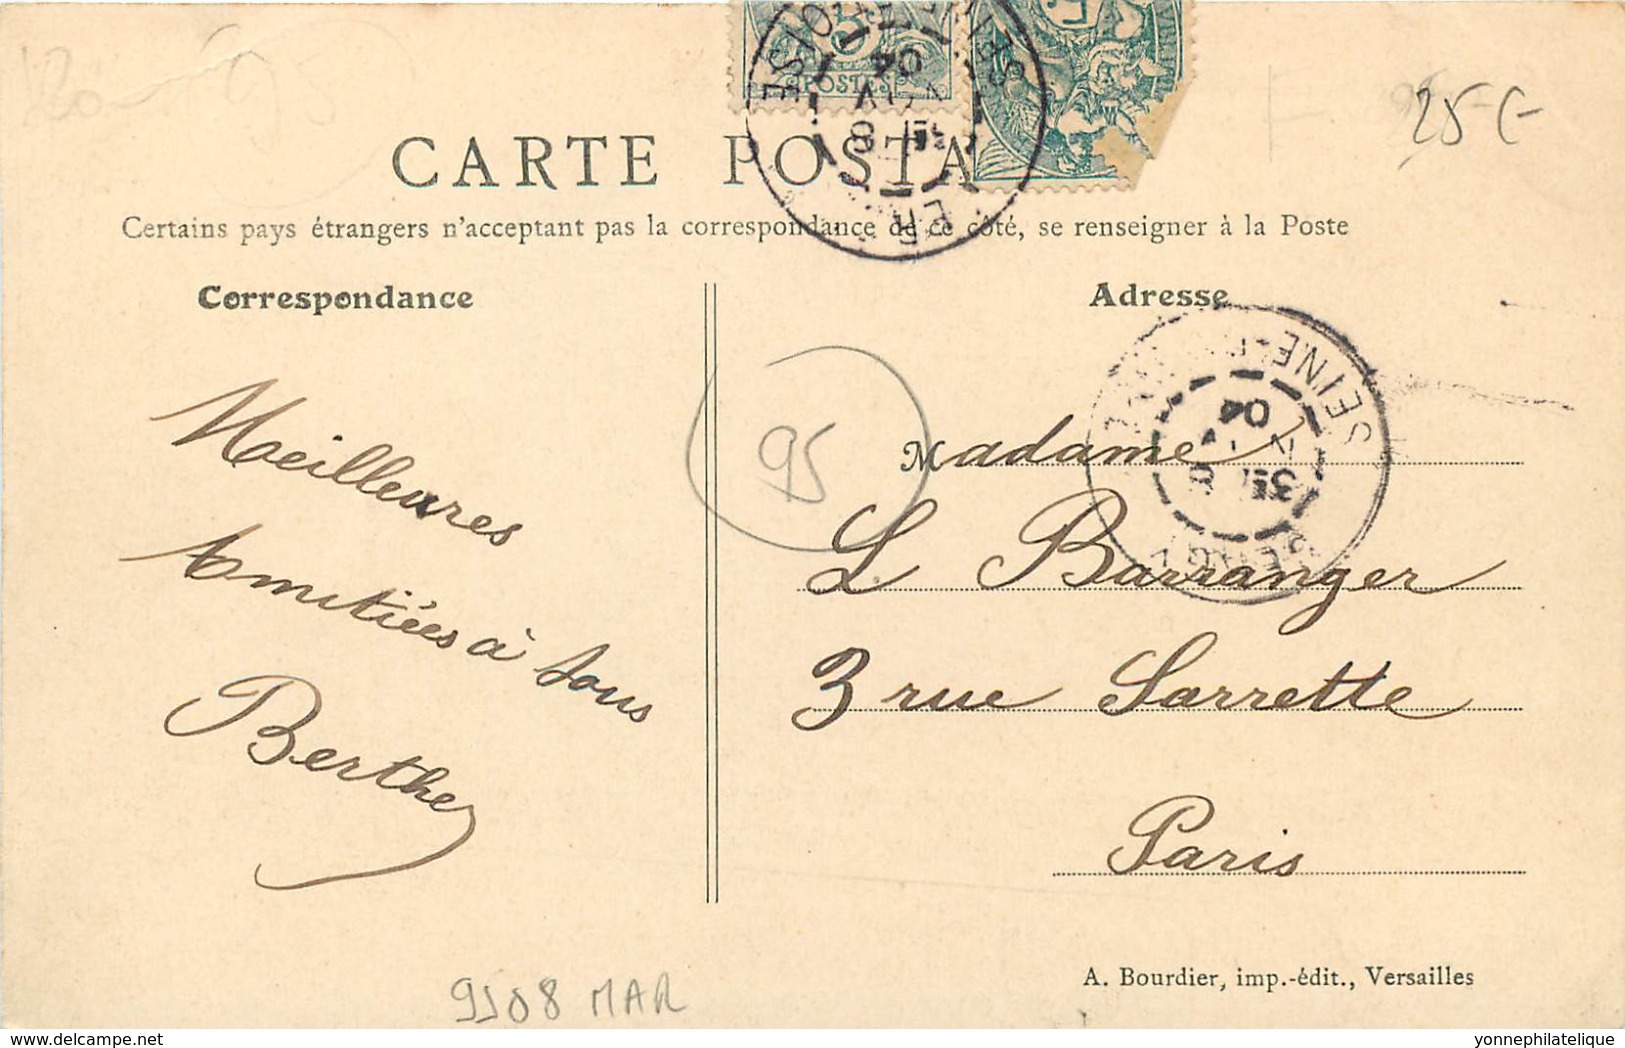 95
25-€
CARTE POSTA
Certains pays étrangers n'acceptant pas la correspondance de ce côté, se renseigner à la Poste
Correspondance
Meilleures
Amitiées à tous
Berthe
Adresse
Madame
L Barranger
3 rue Sarrette
Paris
5
POSTES
OISE
04
SEINE
3E
04
95
A. Bourdier, imp.-édit., Versailles
9508 MAR
www.delcampe.net
yonnephilatelique